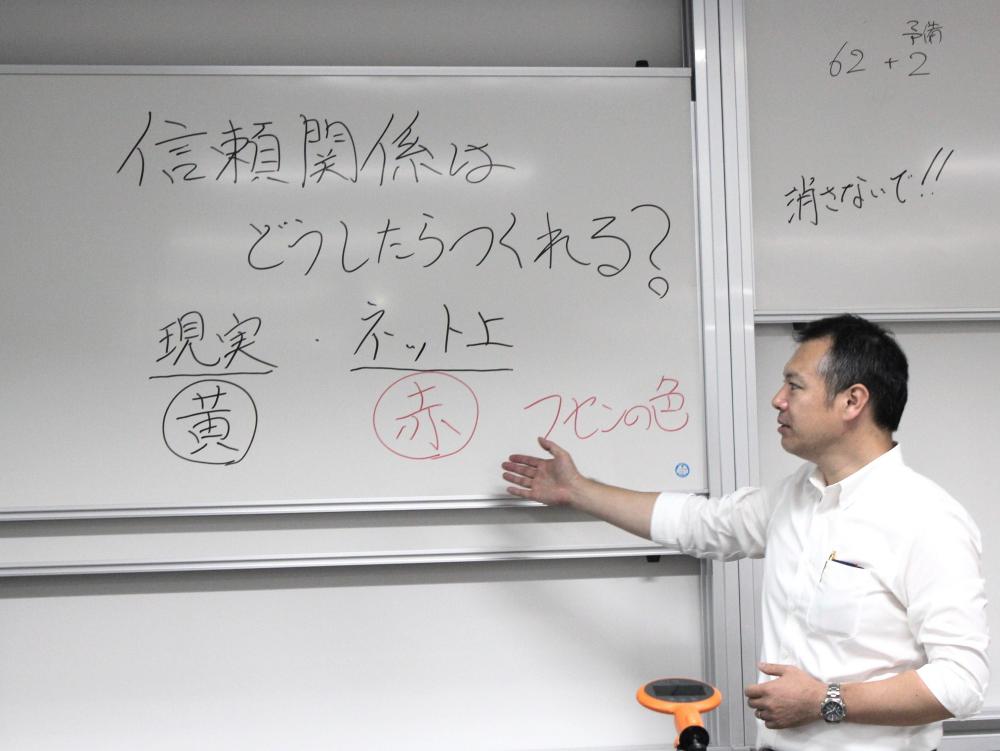 信頼関係は
どうしたらつくれる?
現実・ネット上
黄 赤 フセンの色
予備
62+2
消さないで!!